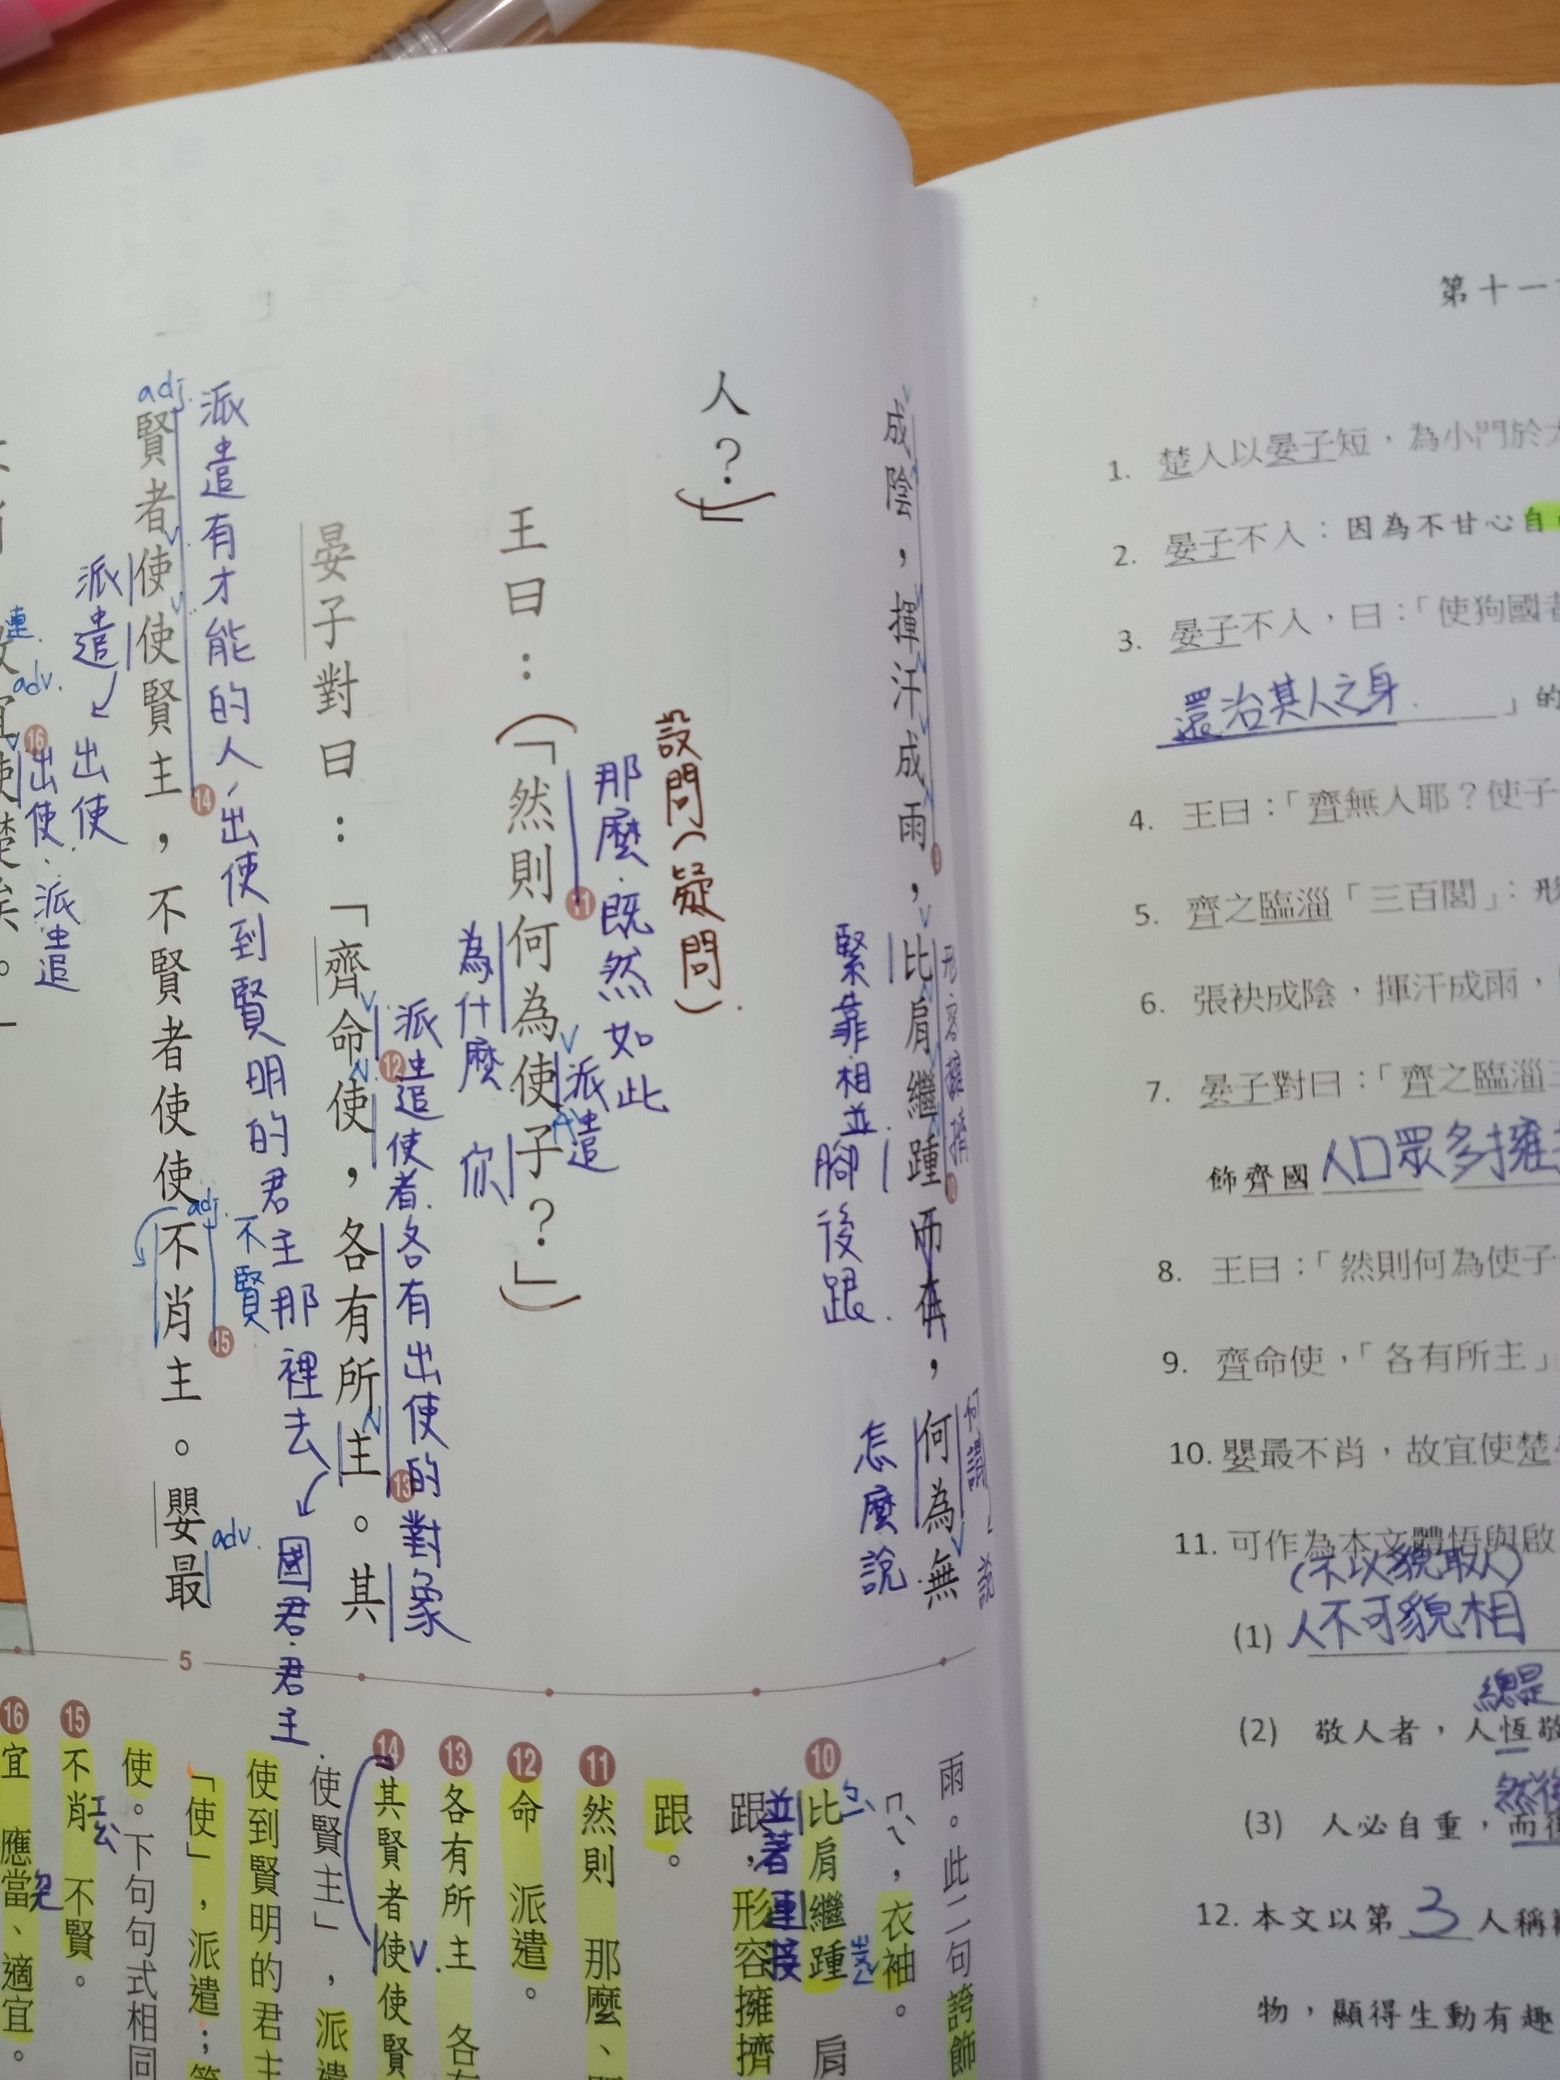 成陰，揮汗成雨，比肩繼踵而在，何為無
形容擁擠
緊靠.相並
腳後跟.
怎麼說
人？」
設問(疑問).
那麼.既然如此
王曰：「然則何為使子？」
11
為什麼
派遣
你
晏子對曰：「齊命使，各有所主。其
派遣使者.各有出使的對象
12
13
國君.君主
派遣有才能的人,出使到賢明的君主那裡去
adj.
賢者使使賢主，不賢者使使不肖主。嬰最
14
adj.
不賢
15
adv.
派遣
出使
連.
adv.
16
出使.派遣
5
雨。此二句誇飾
ㄇㄟˋ，衣袖。
10 比肩繼踵 肩
並著 連接
跟，形容擁擠
跟。
11 然則 那麼、
12 命 派遣。
13 各有所主 各
14 其賢者使使賢
使賢主」，派遣
使到賢明的君主
「使」，派遣；
使。下句句式相同
15 不肖 不賢。
16 宜 應當、適宜。
第十一
1. 楚人以晏子短，為小門於
2. 晏子不入：因為不甘心自
3. 晏子不入，曰：「使狗國者
還治其人之身.」的
4. 王曰：「齊無人耶？使子
5. 齊之臨淄「三百閭」：形
6. 張袂成陰，揮汗成雨，
7. 晏子對曰：「齊之臨淄三
飾齊國人口眾多擁
8. 王曰：「然則何為使子
9. 齊命使，「各有所主」
10. 嬰最不肖，故宜使楚
11. 可作為本文體悟與啟
(不以貌取人)
(1) 人不可貌相
總是
(2) 敬人者，人恆敬
然後
(3) 人必自重，而後
12. 本文以第3人稱
物，顯得生動有趣